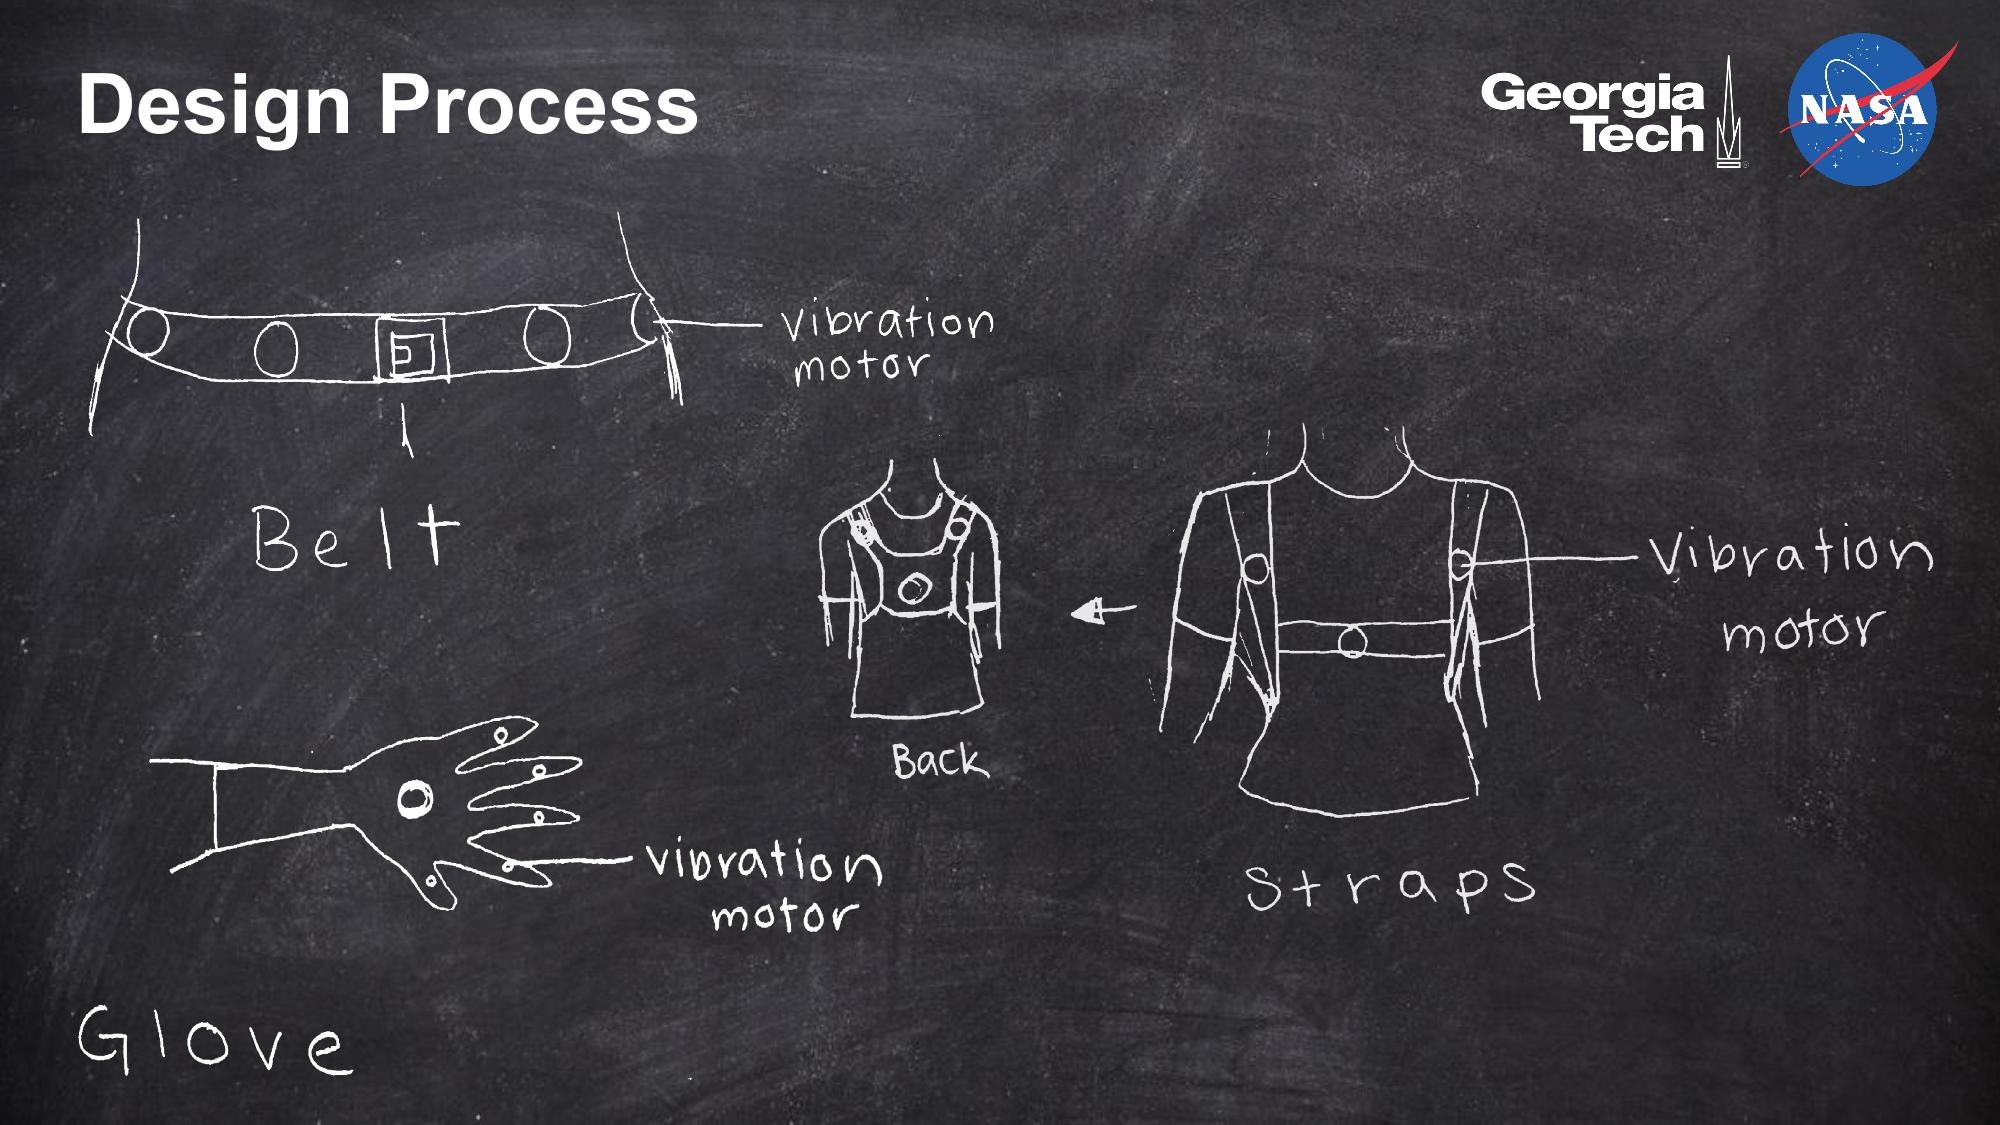 Design Process
Georgia
Tech
NASA
vibration
motor
Belt
Vibration
motor
Back
vibration
motor
Straps
Glove